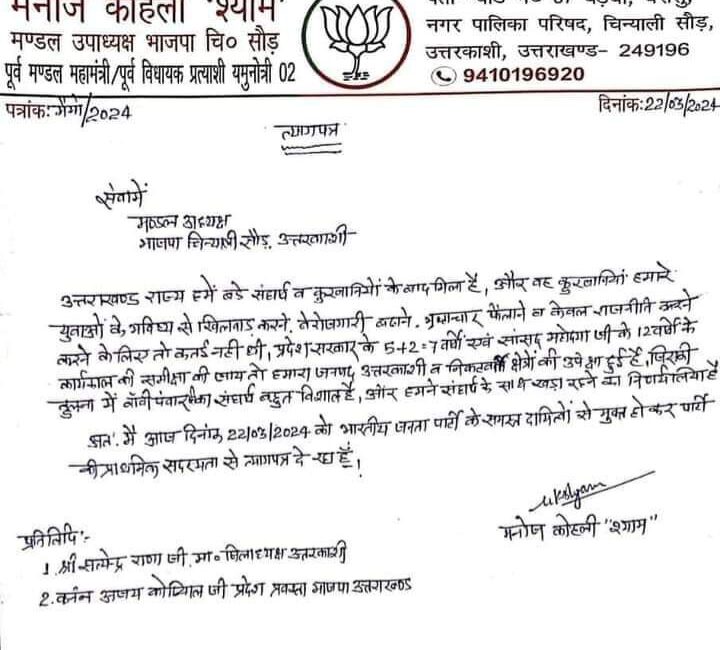 मनोज कोहली 'श्याम'
मण्डल उपाध्यक्ष भाजपा चि० सौड़
पूर्व मण्डल महामंत्री/पूर्व विधायक प्रत्याशी यमुनोत्री 02
नगर पालिका परिषद, चिन्याली सौड़,
उत्तरकाशी, उत्तराखण्ड- 249196
9410196920
पत्रांक: मैमो/2024
दिनांक: 22/03/2024
त्यागपत्र
सेवामें
मण्डल अध्यक्ष
भाजपा चिन्याली सौड़, उत्तरकाशी
उत्तराखण्ड राज्य हमें बडे संघर्ष व कुरबानियों के बाद मिला है, और वह कुरबानियां हमारे
युवाओं के, भविष्य से खिलवाड करने, बेरोजगारी बढाने, भ्रष्टाचार फैलाने व केवल राजनीति करने
करने के लिए तो कतई नहीं थी, प्रदेश सरकार के 5+2=7 वर्षों एवं सांसद महोदया जी के 12 वर्षों के
कार्यकाल की समीक्षा की जाय तो हमारा जनपद उत्तरकाशी व निकटवर्ती क्षेत्रों की उपेक्षा हुई है, जिसकी
तुलना में बॉबी पंवार का संघर्ष बहुत विशाल है, और हमने संघर्ष के साथ खड़ा रहने का निर्णय लिया है
अतः मैं आज दिनांक 22/03/2024 को भारतीय जनता पार्टी के समस्त दायित्वों से मुक्त होकर पार्टी
की प्राथमिक सदस्यता से त्यागपत्र दे रहा हूँ!
मनोज कोहली "श्याम"
प्रतिलिपि:-
1. श्री सत्येन्द्र राणा जी, मा० जिलाध्यक्ष उत्तरकाशी
2. कर्नल अजय कोठियाल जी प्रदेश प्रवक्ता भाजपा उत्तराखण्ड